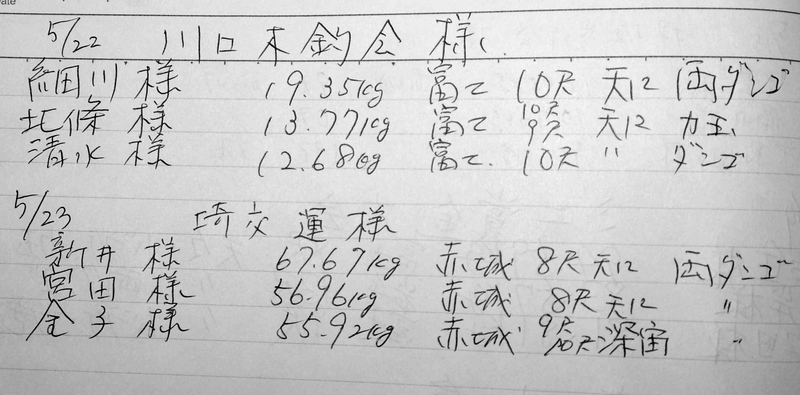 5/22 川口木鈞会 様
細田川 様 19.35kg 富士 10尺 天に 両ダンゴ
北條 様 13.77kg 富士 10尺 9尺 天に 力玉
清水 様 12.680g 富士. 10尺 〃 ダンゴ
5/23 埼交運 様
新井 様 67.67kg 赤城 8尺 天に 両ダンゴ
宮田 様 56.96kg 赤城 8尺 天に 〃
金子 様 55.92kg 赤城 9尺 10尺 深宙 〃